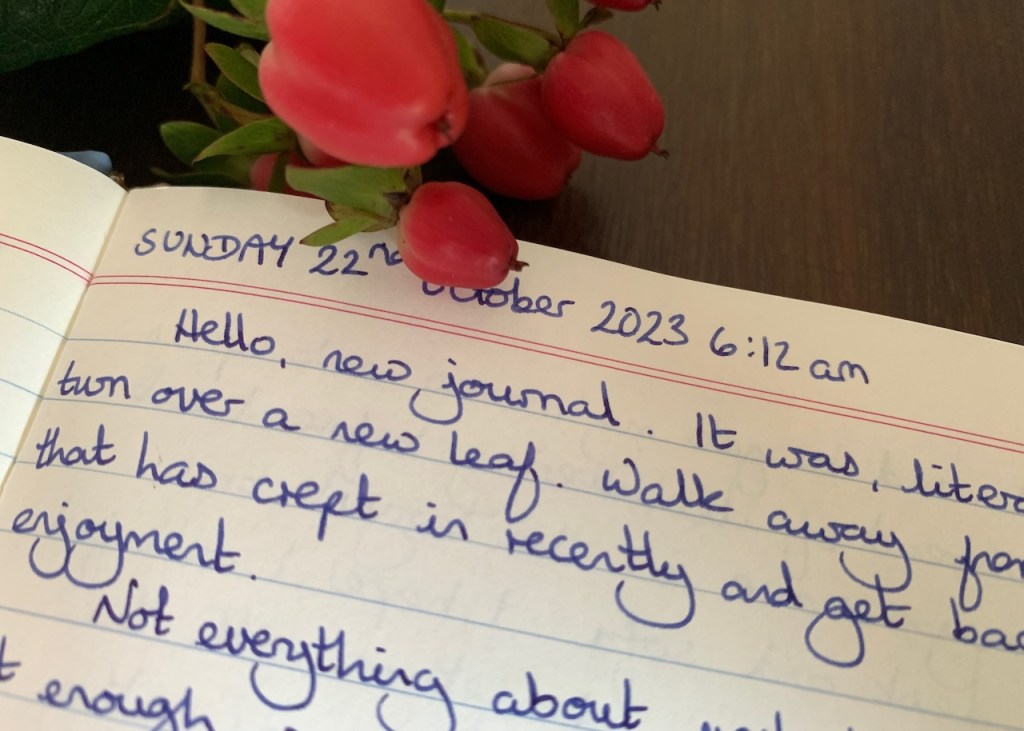 SUNDAY 22nd October 2023 6:12 am
Hello, new journal. It was, litera
turn over a new leaf. Walk away from
that has crept in recently and get bac
enjoyment.
Not everything about
t enough